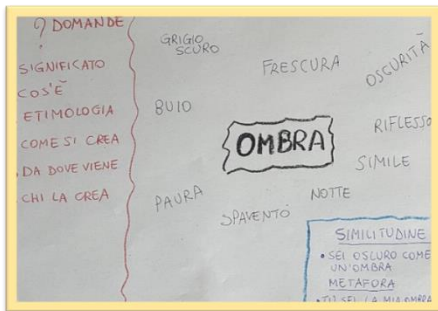 ? DOMANDE
SIGNIFICATO
COS'È
ETIMOLOGIA
COME SI CREA
DA DOVE VIENE
CHI LA CREA
GRIGIO
SCURO
FRESCURA
OSCURITÀ
BUIO
OMBRA
RIFLESSO
SIMILE
PAURA
SPAVENTO
NOTTE
SIMILITUDINE
• SEI OSCURO COME
UN'OMBRA
METAFORA
• TU SEI LA MIA OMBRA